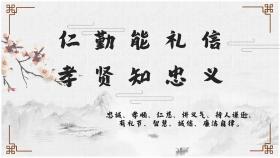 仁 勤 能 礼 信
孝 贤 知 忠 义
忠诚、孝顺、仁慈、讲义气、待人谦逊、
有礼节、智慧、诚信、廉洁自律。